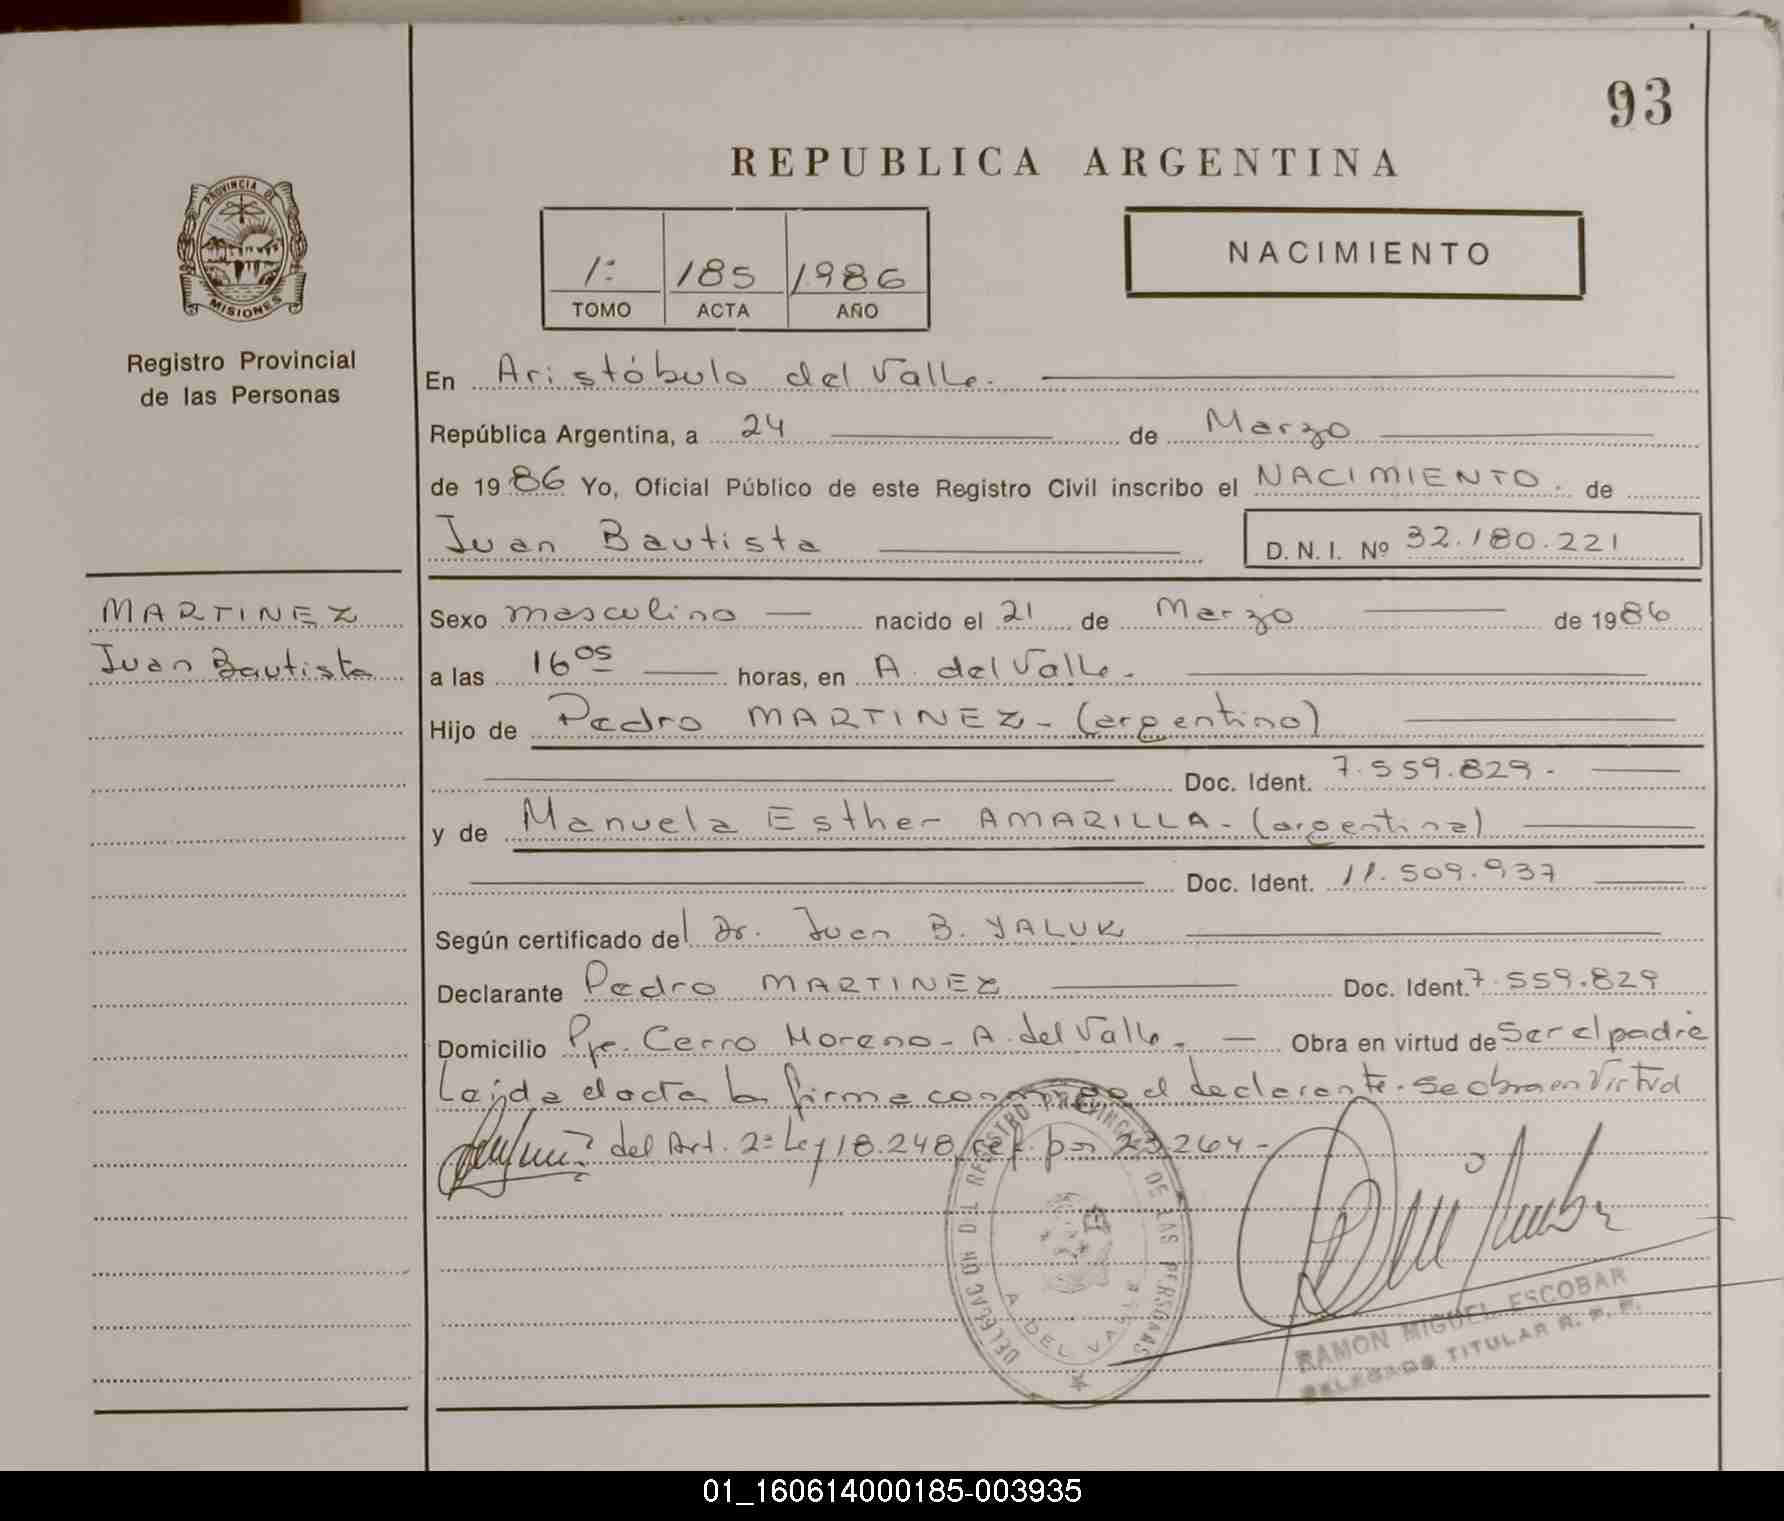 93
REPUBLICA ARGENTINA
PROVINCIA DE MISIONES
Registro Provincial
de las Personas
1º 185 1986
TOMO ACTA AÑO
NACIMIENTO
En Aristóbulo del Valle.
República Argentina, a 24 de Marzo
de 1986 Yo, Oficial Público de este Registro Civil inscribo el NACIMIENTO. de
Juan Bautista D.N.I. Nº 32.180.221
MARTINEZ
Juan Bautista
Sexo masculino nacido el 21 de Marzo de 1986
a las 16 os horas, en A. del Valle.
Hijo de Pedro MARTINEZ - (argentino)
Doc. Ident. 7.559.829.-
y de Manuela Esther AMARILLA - (argentina)
Doc. Ident. 11.509.937
Según certificado del Dr. Juan B. YALUK
Declarante Pedro MARTINEZ Doc. Ident. 7.559.829
Domicilio Pje. Cerro Moreno - A. del Valle. - Obra en virtud de ser el padre
Leída el acta la firma conmigo el declarante. Se obra en virtud
del Art. 2º Ley 18.248 por 23.264 -
DEL REGISTRO PROVINCIAL DE LAS PERSONAS
A. DEL VALLE
RAMON MIGUEL ESCOBAR
DELEGADO TITULAR R. P. P.
01_160614000185-003935